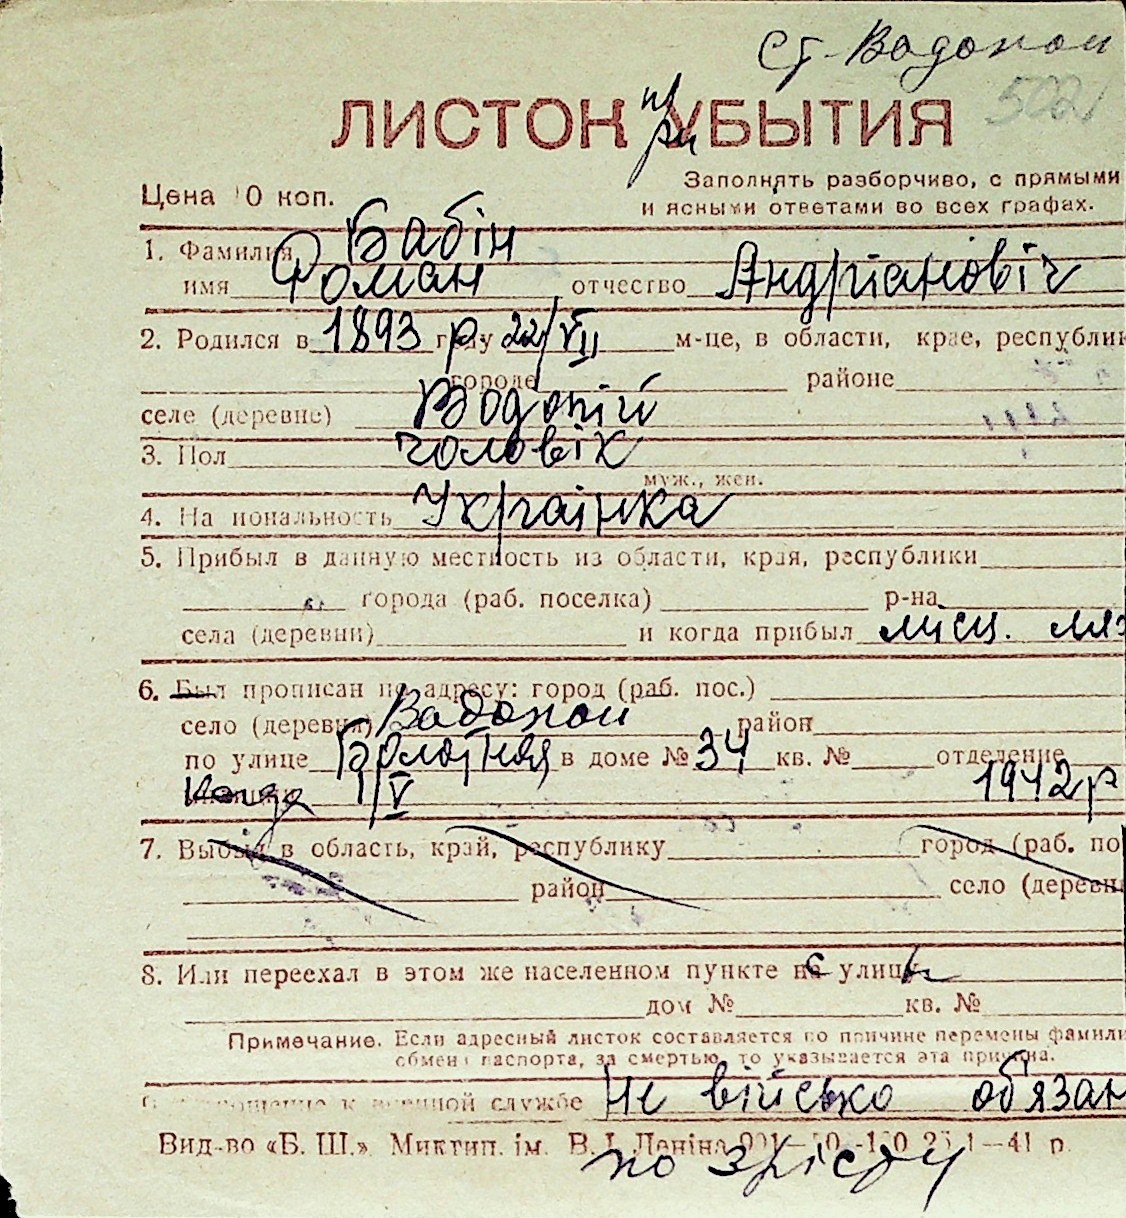 Ст. Водопой
5021
ЛИСТОК при УБЫТИЯ
Цена 10 коп.
Заполнять разборчиво, с прямыми
и ясными ответами во всех графах.
1. Фамилия Бабін
имя Роман отчество Андріановіч
2. Родился в 1893 р году 22/VII м-це, в области, крае, республик
городе районе
селе (деревне) Водопій
3. Пол чоловік
муж., жен.
4. Национальность Українка
5. Прибыл в данную местность из области, края, республики
города (раб. поселка) р-на
села (деревни) и когда прибыл місц.
6. Был прописан по адресу: город (раб. пос.)
село (деревня) Водопои район
по улице Болотная в доме № 34 кв. № отделение
когда 1/V 1942 р
7. Выбыл в область, край, республику город (раб. по
район село (деревн
8. Или переехал в этом же населенном пункте с улицы
дом № кв. №
Примечание. Если адресный листок составляется по причине перемены фамили
обмена паспорта, за смертью, то указывается эта причина.
Отношение к военной службе Не військо об'язан
Вид-во «Б. Ш.» Миктип. ім. В. І. Леніна 25 1—41 р.
по зрісту